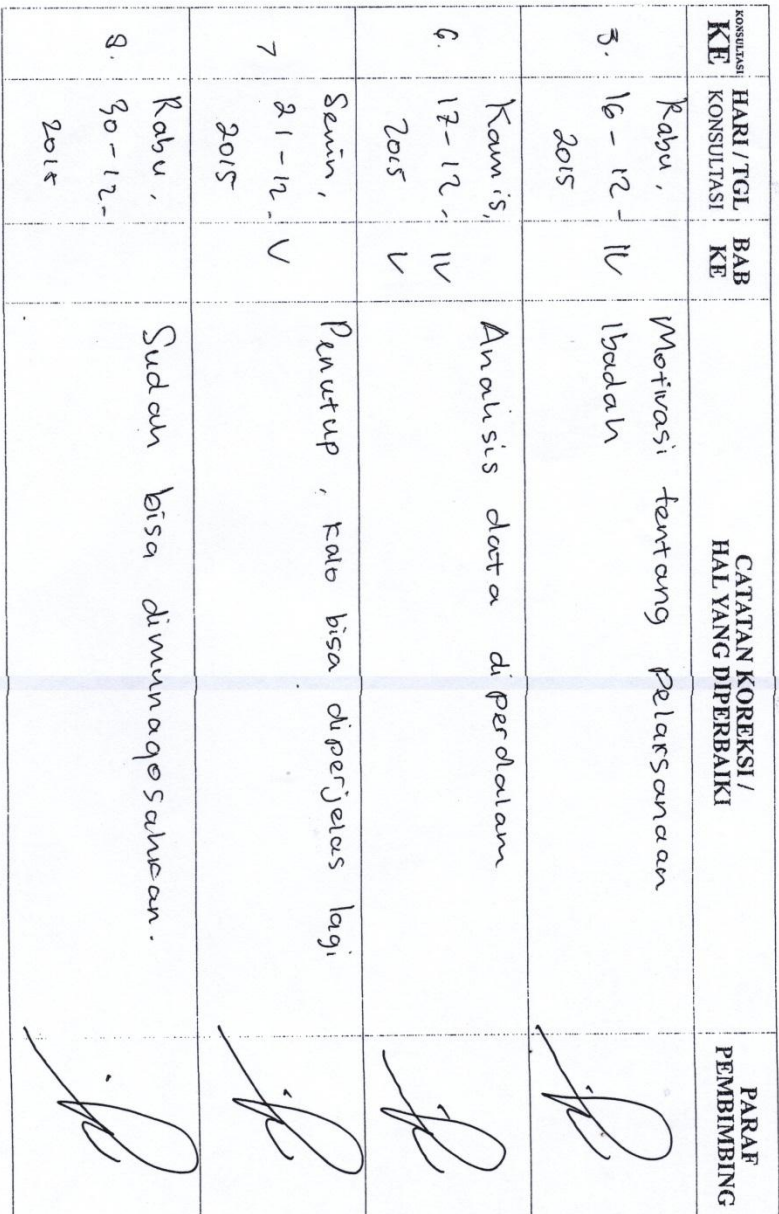 KONSULTASI KE
HARI / TGL KONSULTASI
BAB KE
CATATAN KOREKSI / HAL YANG DIPERBAIKI
PARAF PEMBIMBING
5.
Rabu,
16 - 12 -
2015
IV
Motivasi tentang Pelaksanaan
Ibadah
6.
Kamis,
17 - 12 -
2015
IV
V
Analisis data diperdalam
7
Senin,
21 - 12 -
2015
V
Penutup, kalo bisa diperjelas lagi
8.
Rabu,
30 - 12 -
2015
Sudah bisa dimunaqosahkan.